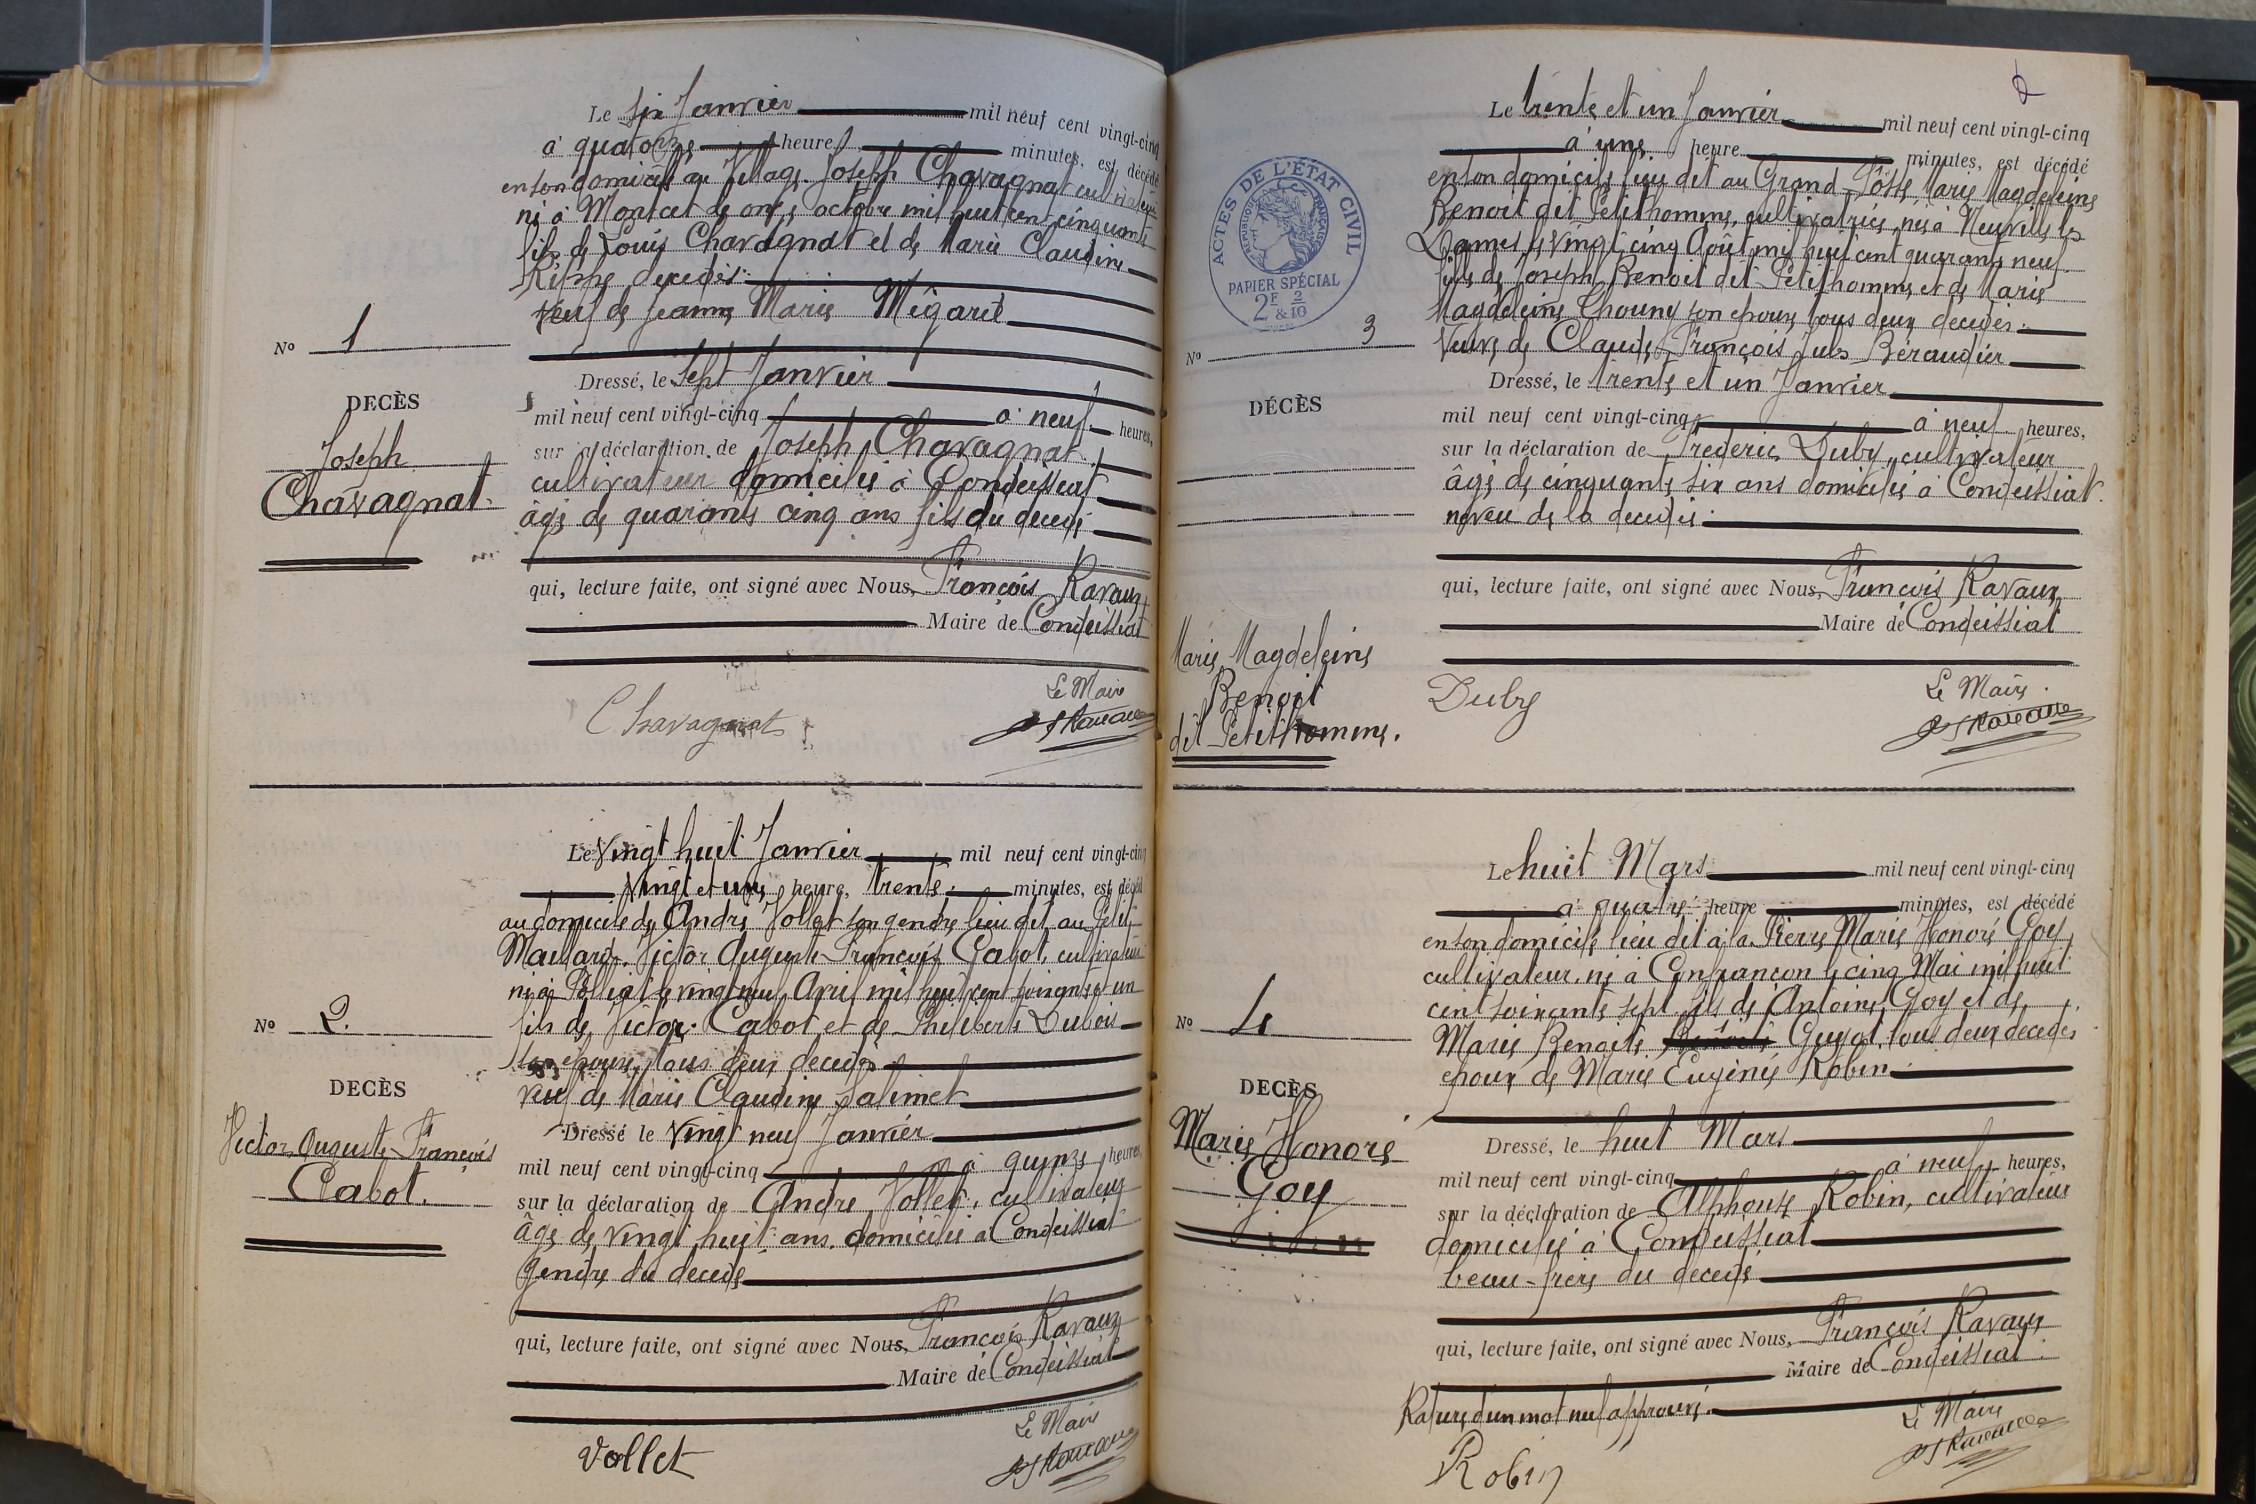 Le six Janvier mil neuf cent vingt-cinq
à quatorze heure minutes, est décédé
en son domicile au Village Joseph Chavagnat cultivateur
né à Montcet le onze octobre mil huit cent cinquante
fils de Louis Chavagnat et de Marie Claudine
décédés
veuf de Jeanne Marie Mégard
Nº 1
Dressé, le Sept Janvier
DÉCÈS
mil neuf cent vingt-cinq à neuf heures,
Joseph
sur la déclaration de Joseph Chavagnat
Chavagnat
cultivateur domicilié à Condeissiat
âgé de quarante cinq ans fils du décédé
qui, lecture faite, ont signé avec Nous, François Ravaux
Maire de Condeissiat
Le Maire
Chavagnat
Le Vingt huit Janvier mil neuf cent vingt-cinq
Vingt et une heure, trente minutes, est décédé
au domicile de André Vollet son gendre lieu dit au Petit
Maillard. Victor Auguste François Cabot, cultivateur
né à Polliat le vingt neuf Avril mil huit cent soixante et un
fils de Victor Cabot et de Philiberte Dubois
Nº 2.
son épouse, tous deux décédés
DÉCÈS
veuf de Marie Claudine Salimet
Victor, Auguste François
Dressé le Vingt neuf Janvier
Cabot.
mil neuf cent vingt-cinq à quinze heures,
sur la déclaration de André Vollet, cultivateur
âgé de Vingt huit ans, domicilié à Condeissiat
gendre du décédé
qui, lecture faite, ont signé avec Nous, François Ravaux
Maire de Condeissiat
Le Maire
Vollet
Le trente et un Janvier mil neuf cent vingt-cinq
à une heure minutes, est décédé
en son domicile lieu dit au Grand Fossé, Marie Magdeleine
Benoit dit Petithomme, cultivatrice, née à Neuville les
Dames le vingt cinq Août mil huit cent quarante neuf
fille de Joseph Benoit dit Petithomme et de Marie
Magdeleine son épouse tous deux décédés.
Veuve de Claude François Jules Béraudier
ACTES DE L'ÉTAT CIVIL
RÉPUBLIQUE FRANÇAISE
PAPIER SPÉCIAL
2F 2
& 10
Nº 3
Dressé, le trente et un Janvier
DÉCÈS
mil neuf cent vingt-cinq à neuf heures,
sur la déclaration de Frédéric Duby, cultivateur
âgé de cinquante six ans domicilié à Condeissiat.
neveu de la décédée.
qui, lecture faite, ont signé avec Nous, François Ravaux
Maire de Condeissiat
Marie Magdeleine
Benoit
dit Petithomme.
Duby
Le Maire.
Le huit Mars mil neuf cent vingt-cinq
à quatre heure minutes, est décédé
en son domicile lieu dit à la Pierre Marie Honoré Goy
cultivateur, né à Confrançon le cinq Mai mil huit
cent soixante sept fils de Antoine Goy et de
Marie Benoite Guyot, tous deux décédés
Nº 4
époux de Marie Eugénie Robin
DÉCÈS
Marie Honoré
Dressé, le huit Mars
Goy
mil neuf cent vingt-cinq à neuf heures,
sur la déclaration de Alphonse Robin, cultivateur
domicilié à Condeissiat
beau-frère du décédé
qui, lecture faite, ont signé avec Nous, François Ravaux
Maire de Condeissiat
Rature d'un mot nul approuvée.
Le Maire
Robin